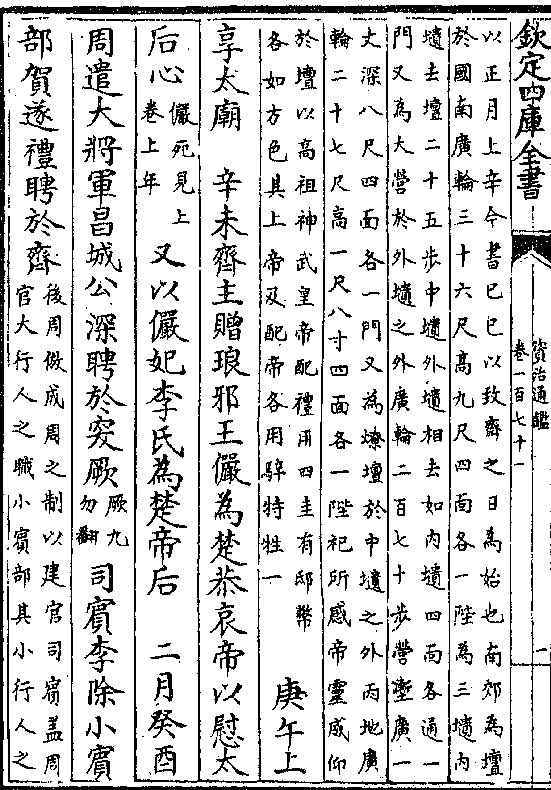 欽定四庫全書
資治通鑑
卷一百七十一
一
以正月上辛今書己巳以致齋之日為始也南郊為壇
於國南廣輪三十六尺高九尺四面各一陛為三壝内
壝去壇二十五步中壝外壝相去如内壝四面各通一
門又為大營於外壝之外廣輪二百七十步營壍廣一
丈深八尺四面各一門又為燎壇於中壝之外丙地廣
輪二十七尺高一尺八寸四面各一陛祀所感帝靈威仰
於壇以高祖神武皇帝配禮用四圭有邸幣
各如方色其上帝及配帝各用騂特牲一
庚午上
享太廟 辛未齊主贈琅邪王儼為楚恭哀帝以慰太
后心
儼死見上
卷上年
又以儼妃李氏為楚帝后 二月癸酉
周遣大將軍昌城公深聘於突厥
厥九
勿翻
司賓李除小賓
部賀遂禮聘於齊
後周倣成周之制以建官司賓盖周
官大行人之職小賓部其小行人之